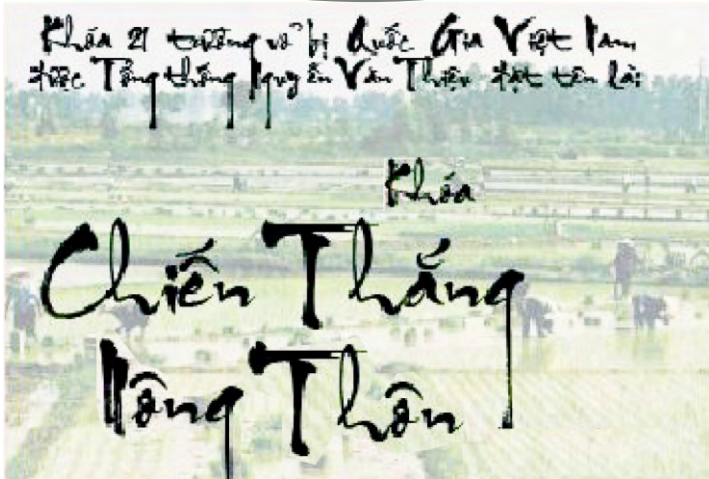 Khóa 21 trường võ bị Quốc Gia Việt Nam
được Tổng thống Nguyễn Văn Thiệu đặt tên là:
Khóa
Chiến Thắng
Nông Thôn